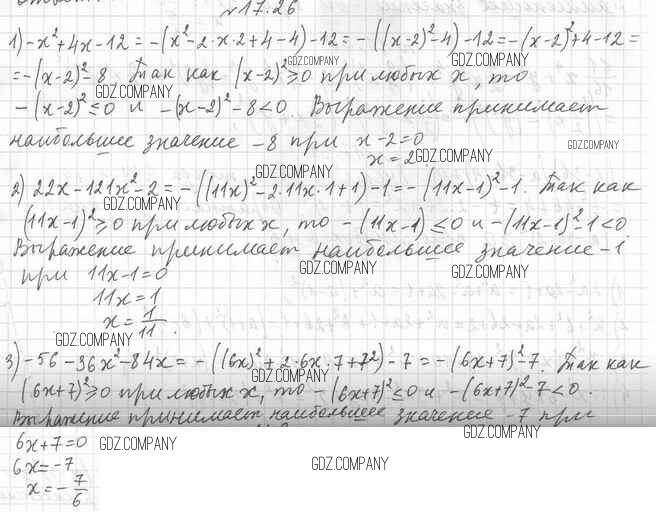 №17.26
1) -x²+4x-12 = -(x²-2·x·2+4-4)-12 = -((x-2)²-4)-12 = -(x-2)²+4-12 =
= -(x-2)²-8. Так как (x-2)² ≥ 0 при любых x, то
-(x-2)² ≤ 0 и -(x-2)²-8 < 0. Выражение принимает
наибольшее значение -8 при x-2=0
x = 2
2) 22x-121x²-2 = -((11x)²-2·11x·1+1)-1 = -(11x-1)²-1. Так как
(11x-1)² ≥ 0 при любых x, то -(11x-1) ≤ 0 и -(11x-1)²-1 < 0.
Выражение принимает наибольшее значение -1
при 11x-1=0
11x = 1
x = 1/11.
3) -56-36x²-84x = -((6x)²+2·6x·7+7²)-7 = -(6x+7)²-7. Так как
(6x+7)² ≥ 0 при любых x, то -(6x+7)² ≤ 0 и -(6x+7)²-7 < 0.
Выражение принимает наибольшее значение -7 при
6x+7=0
6x = -7
x = -7/6
GDZ.COMPANY
GDZ.COMPANY
GDZ.COMPANY
GDZ.COMPANY
GDZ.COMPANY
GDZ.COMPANY
GDZ.COMPANY
GDZ.COMPANY
GDZ.COMPANY
GDZ.COMPANY
GDZ.COMPANY
GDZ.COMPANY
GDZ.COMPANY
GDZ.COMPANY